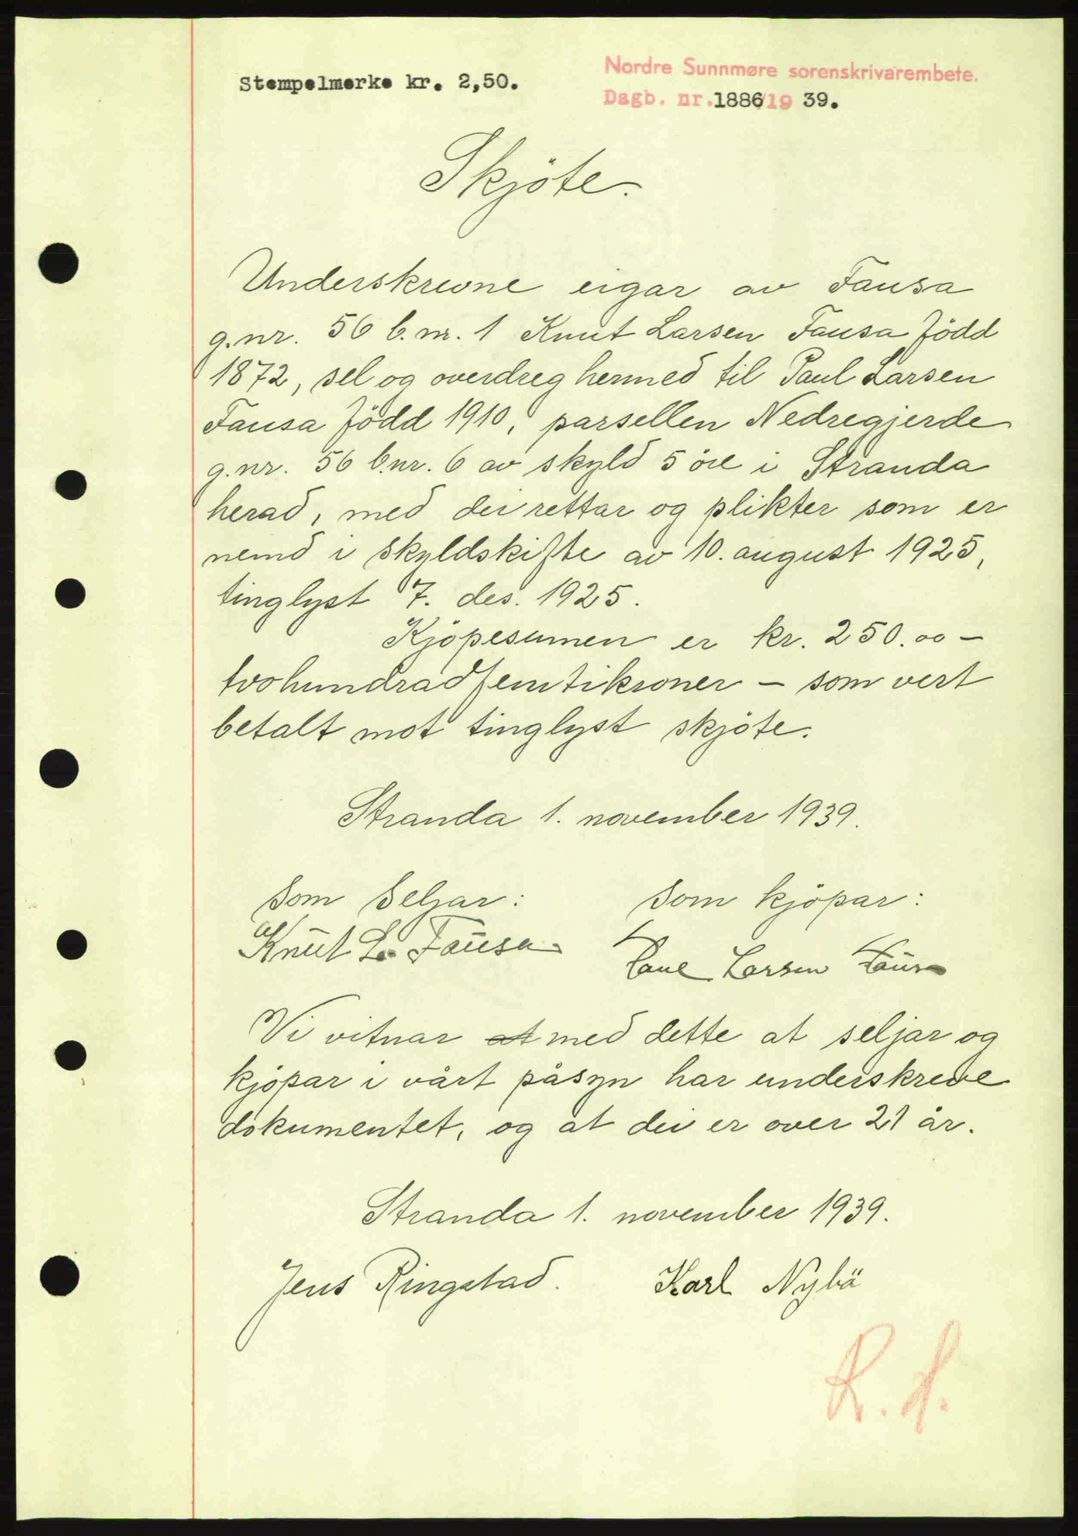 Stempelmerke kr. 2,50.
Nordre Sunnmøre sorenskrivarembete.
Dagb. nr. 1886/19 39.
Skjöte.
Underskrevne eigar av Fausa
g.nr. 56 b.nr. 1 Knut Larsen Fausa född
1872, sel og overdreg hermed til Paul Larsen
Fausa född 1910, parsellen Nedregjerde
g.nr. 56 b.nr. 6 av skyld 5 öre i Stranda
herad, med dei rettar og plikter som er
nemd i skyldskifte av 10. august 1925,
tinglyst 7. des. 1925.
Kjöpesumen er kr. 250.00 –
tvohundradfemtikroner – som vert
betalt mot tinglyst skjöte.
Stranda 1. november 1939.
Som Seljar:
Som kjöpar:
Knut L. Fausa
Paul Larsen Fausa
Vi vitnar at med dette at seljar og
kjöpar i vårt påsyn har underskreve
dokumentet, og at dei er over 21 år.
Stranda 1. november 1939.
Jens Ringstad.
Karl Nybö
R. H.